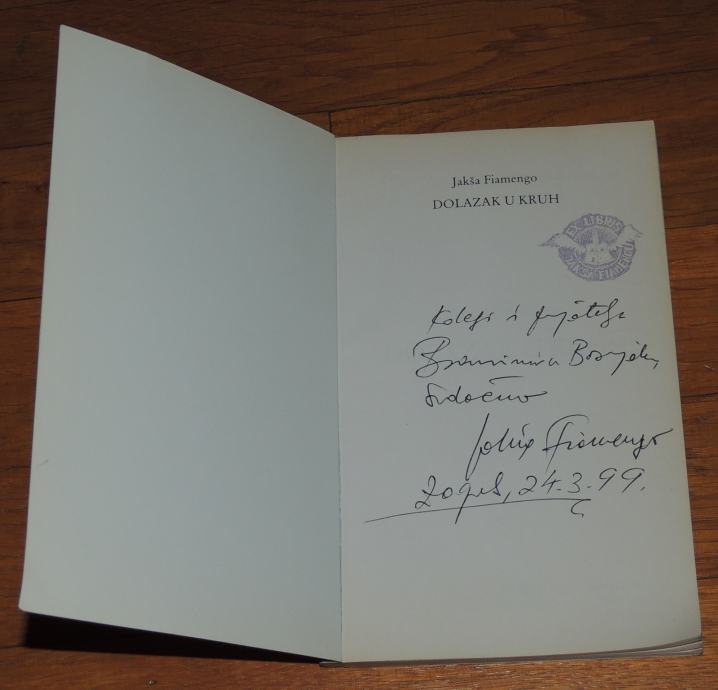 Jakša Fiamengo
DOLAZAK U KRUH
EX LIBRIS
JAKŠA FIAMENGO
Kolegi i prijatelju
Branimiru Bošnjaku
srdačno
Jakša Fiamengo
Zagreb, 24.3.99.